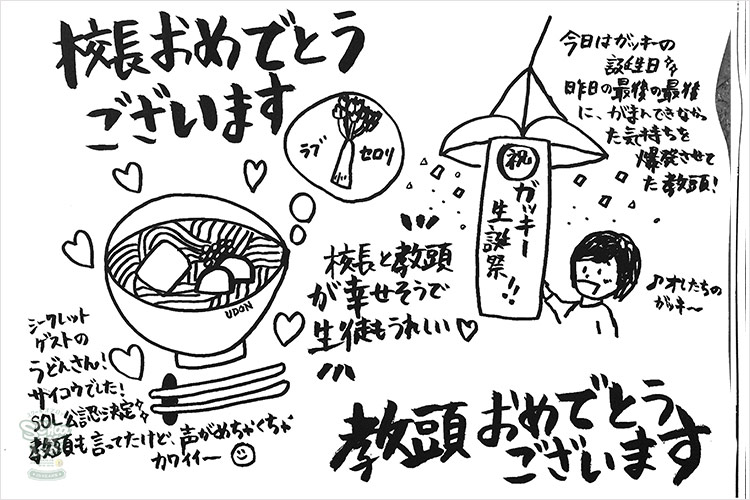 校長おめでとう
ございます
ラブ
セロリ
UDON
シークレット
ゲストの
うどんさん!
サイコウでした!
SOL公認決定
教頭も言ってたけど、声がめちゃくちゃ
カワイイー
校長と教頭
が幸せそうで
生徒もうれしい♡
今日はガッキーの
誕生日
昨日の最後の最後
に、がまんできなかっ
た気持ちを
爆発させて
た教頭!
祝
ガッキー
生誕祭!!
♪オレたちの
ガッキ〜
教頭おめでとう
ございます